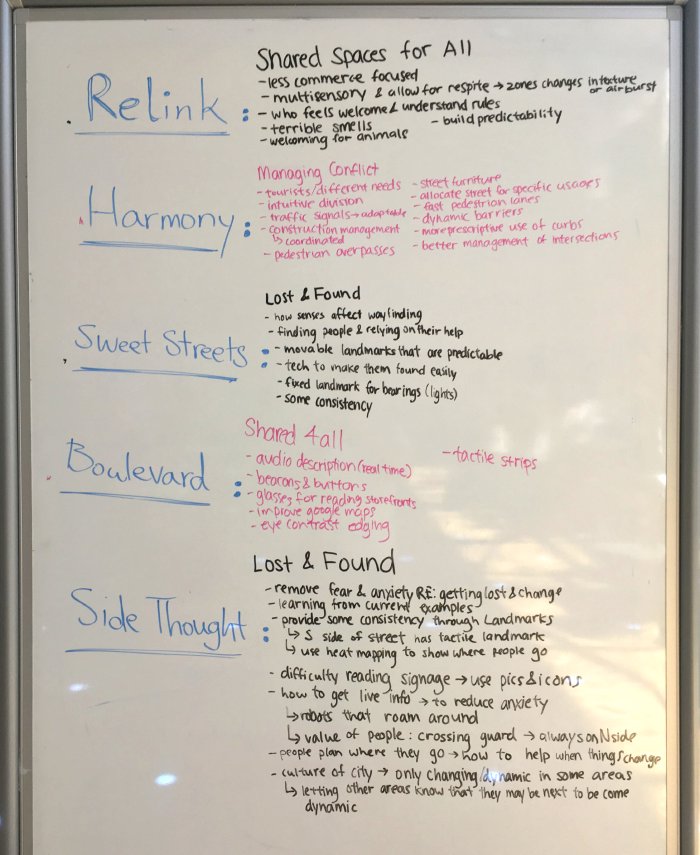 Shared Spaces for All
Relink:
- less commerce focused
- multisensory & allow for respite → zones changes in texture or air burst
- who feels welcome & understand rules
- build predictability
- terrible smells
- welcoming for animals
Managing Conflict
Harmony:
- tourists/different needs
- intuitive division
- traffic signals → adaptable
- construction management
↳ coordinated
- pedestrian overpasses
- street furniture
- allocate street for specific usages
- fast pedestrian lanes
- dynamic barriers
- more prescriptive use of curbs
- better management of intersections
Lost & Found
Sweet Streets:
- how senses affect wayfinding
- finding people & relying on their help
- movable landmarks that are predictable
- tech to make them found easily
- fixed landmark for bearings (lights)
- some consistency
Shared 4all
Boulevard:
- audio description (real time)
- beacons & buttons
- glasses for reading storefronts
- improve google maps
- eye contrast edging
- tactile strips
Lost & Found
Side Thought:
- remove fear & anxiety RE: getting lost & change
- learning from current examples
- provide some consistency through Landmarks
↳ S side of street has tactile landmark
↳ use heat mapping to show where people go
- difficulty reading signage → use pics & icons
- how to get live info → to reduce anxiety
↳ robots that roam around
↳ value of people: crossing guard → always on N side
- people plan where they go → how to help when things change
- culture of city → only changing/dynamic in some areas
↳ letting other areas know that they may be next to be come
dynamic